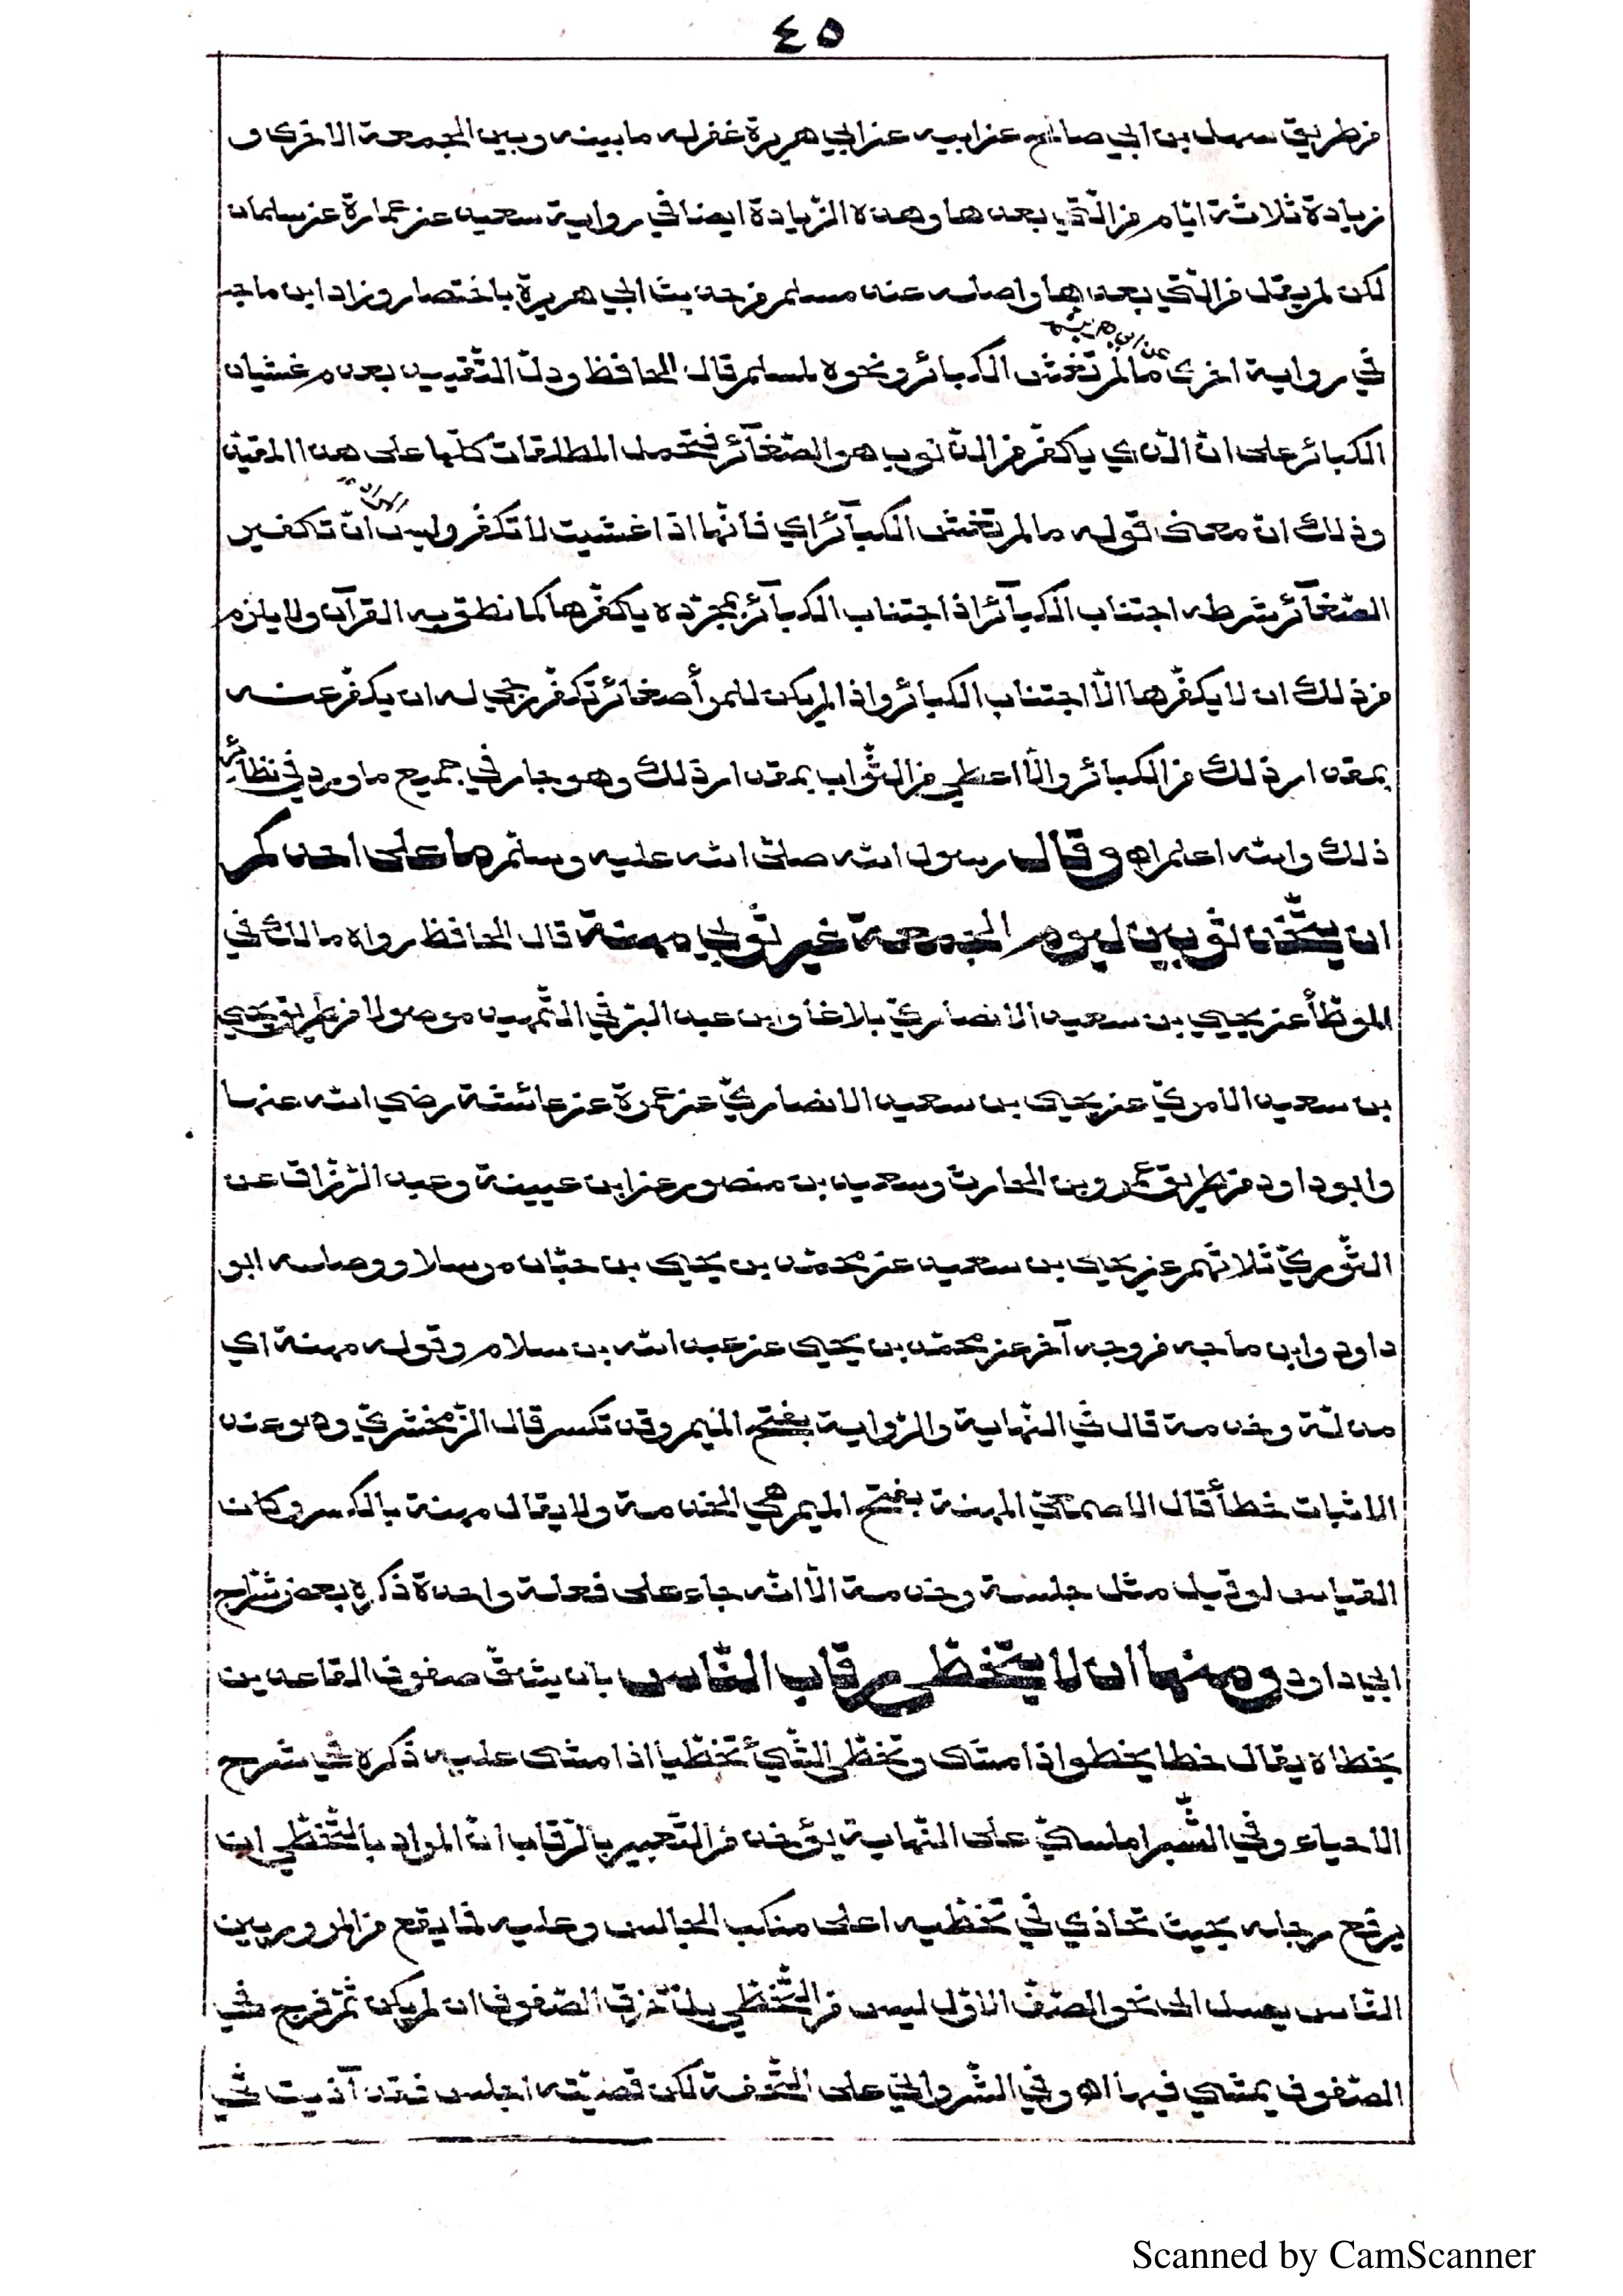 ٤٥
من طريق سهل بن ابي صالح عن ابيه عن ابي هريرة غفرله ما بينه وبين الجمعة الاخرى و
زيادة ثلاثة ايّام من الّتي بعدها وهذه الزّيادة ايضا في رواية سعيد عن عمارة عن سلمان
لكن لم يقل من الّتي بعدها واصله عند مسلم من حديث ابي هريرة باختصار وزاد ابن ماجه
في رواية اخرى عن ابي هريرة ما لم تغش الكبائر ونحوه لمسلم قال الحافظ ودلّ التّقييد بعدم غشيان
الكبائر على انّ الّذي يكفّر من الذّنوب هو الصّغآئر فتحمل المطلقات كلّها على هذا المقيّد
وذلك انّ معنى قوله ما لم تغش الكبآئر اي فانّها اذا غشيت لا تكفّر وليس المراد انّ تكفير
الصّغآئر شرطه اجتناب الكبآئر اذ اجتناب الكبآئر بمجرّده يكفّرها كما نطق به القرآن ولا يلزم
من ذلك ان لا يكفّرها الّا اجتناب الكبائر واذا لم يكن للمرأ صغائر تكفّر رجي له ان يكفّر عنه
بمقدار ذلك من الكبائر والّا اعطي من الثّواب بمقدار ذلك وهو جار في جميع ما ورد في نظائر
ذلك والله اعلم اه وقال رسول الله صلّى الله عليه وسلّم ما على احدكم
ان يتّخذ ثوبين ليوم الجمعة غير ثوبي مهنة قال الحافظ رواه مالك في
الموطّأ عن يحيي بن سعيد الانصاريّ بلاغا وابن عبد البرّ في التّمهيد موصولا من طريق يحيي
بن سعيد الامويّ عن يحيى بن سعيد الانصاريّ عن عمرة عن عائشة رضي الله عنها
وابو داود من طريق عمرو بن الحارث وسعيد بن منصور عن ابن عيينة وعبد الرّزّاق عن
الثّوريّ ثلاثتهم عن يحيى بن سعيد عن محمّد بن يحيي بن حبّان مرسلا ووصله ابو
داود وابن ماجه من وجه آخر عن محمّد بن يحيى عن عبد الله بن سلام وقوله مهنة اي
مذلّة وخدمة قال في النّهاية والرّواية بفتح الميم وقد تكسر قال الزّمخشريّ وهو عند
الاثبات خطأ قال الاصمعيّ المهنة بفتح الميم هي الخدمة ولا يقال مهنة بالكسر وكان
القياس لو قيل مثل جلسة وخدمة الّا انّه جاء على فعلة واحدة ذكره بعض شرّاح
ابي داود ومنها ان لا يتخطّى رقاب النّاس بان يشقّ صفوف القاعدين
يخطاه يقال خطا يخطو اذا مشى وتخطّى الشّيئ تخطّيا اذا مشى عليه ذكره في شرح
الاحياء وفي الشّبراملسيّ على النّهاية يؤخذ من التّعبير بالرّقاب انّ المراد بالتّخطّي ان
يرفع رجله بحيث تحاذي في تخطّيه اعلى مناكب الجالس وعليه فما يقع من المرور بين
النّاس يصل الى نحو الصّفّ الاوّل ليس من التّخطّي بل من خرق الصّفوف ان لم يكن ثمّ فرج في
الصّفوف يمشي فيها اه وفي الشّروانيّ على التّحفة لكن قضيّته اجلس فقد آذيت في
Scanned by CamScanner